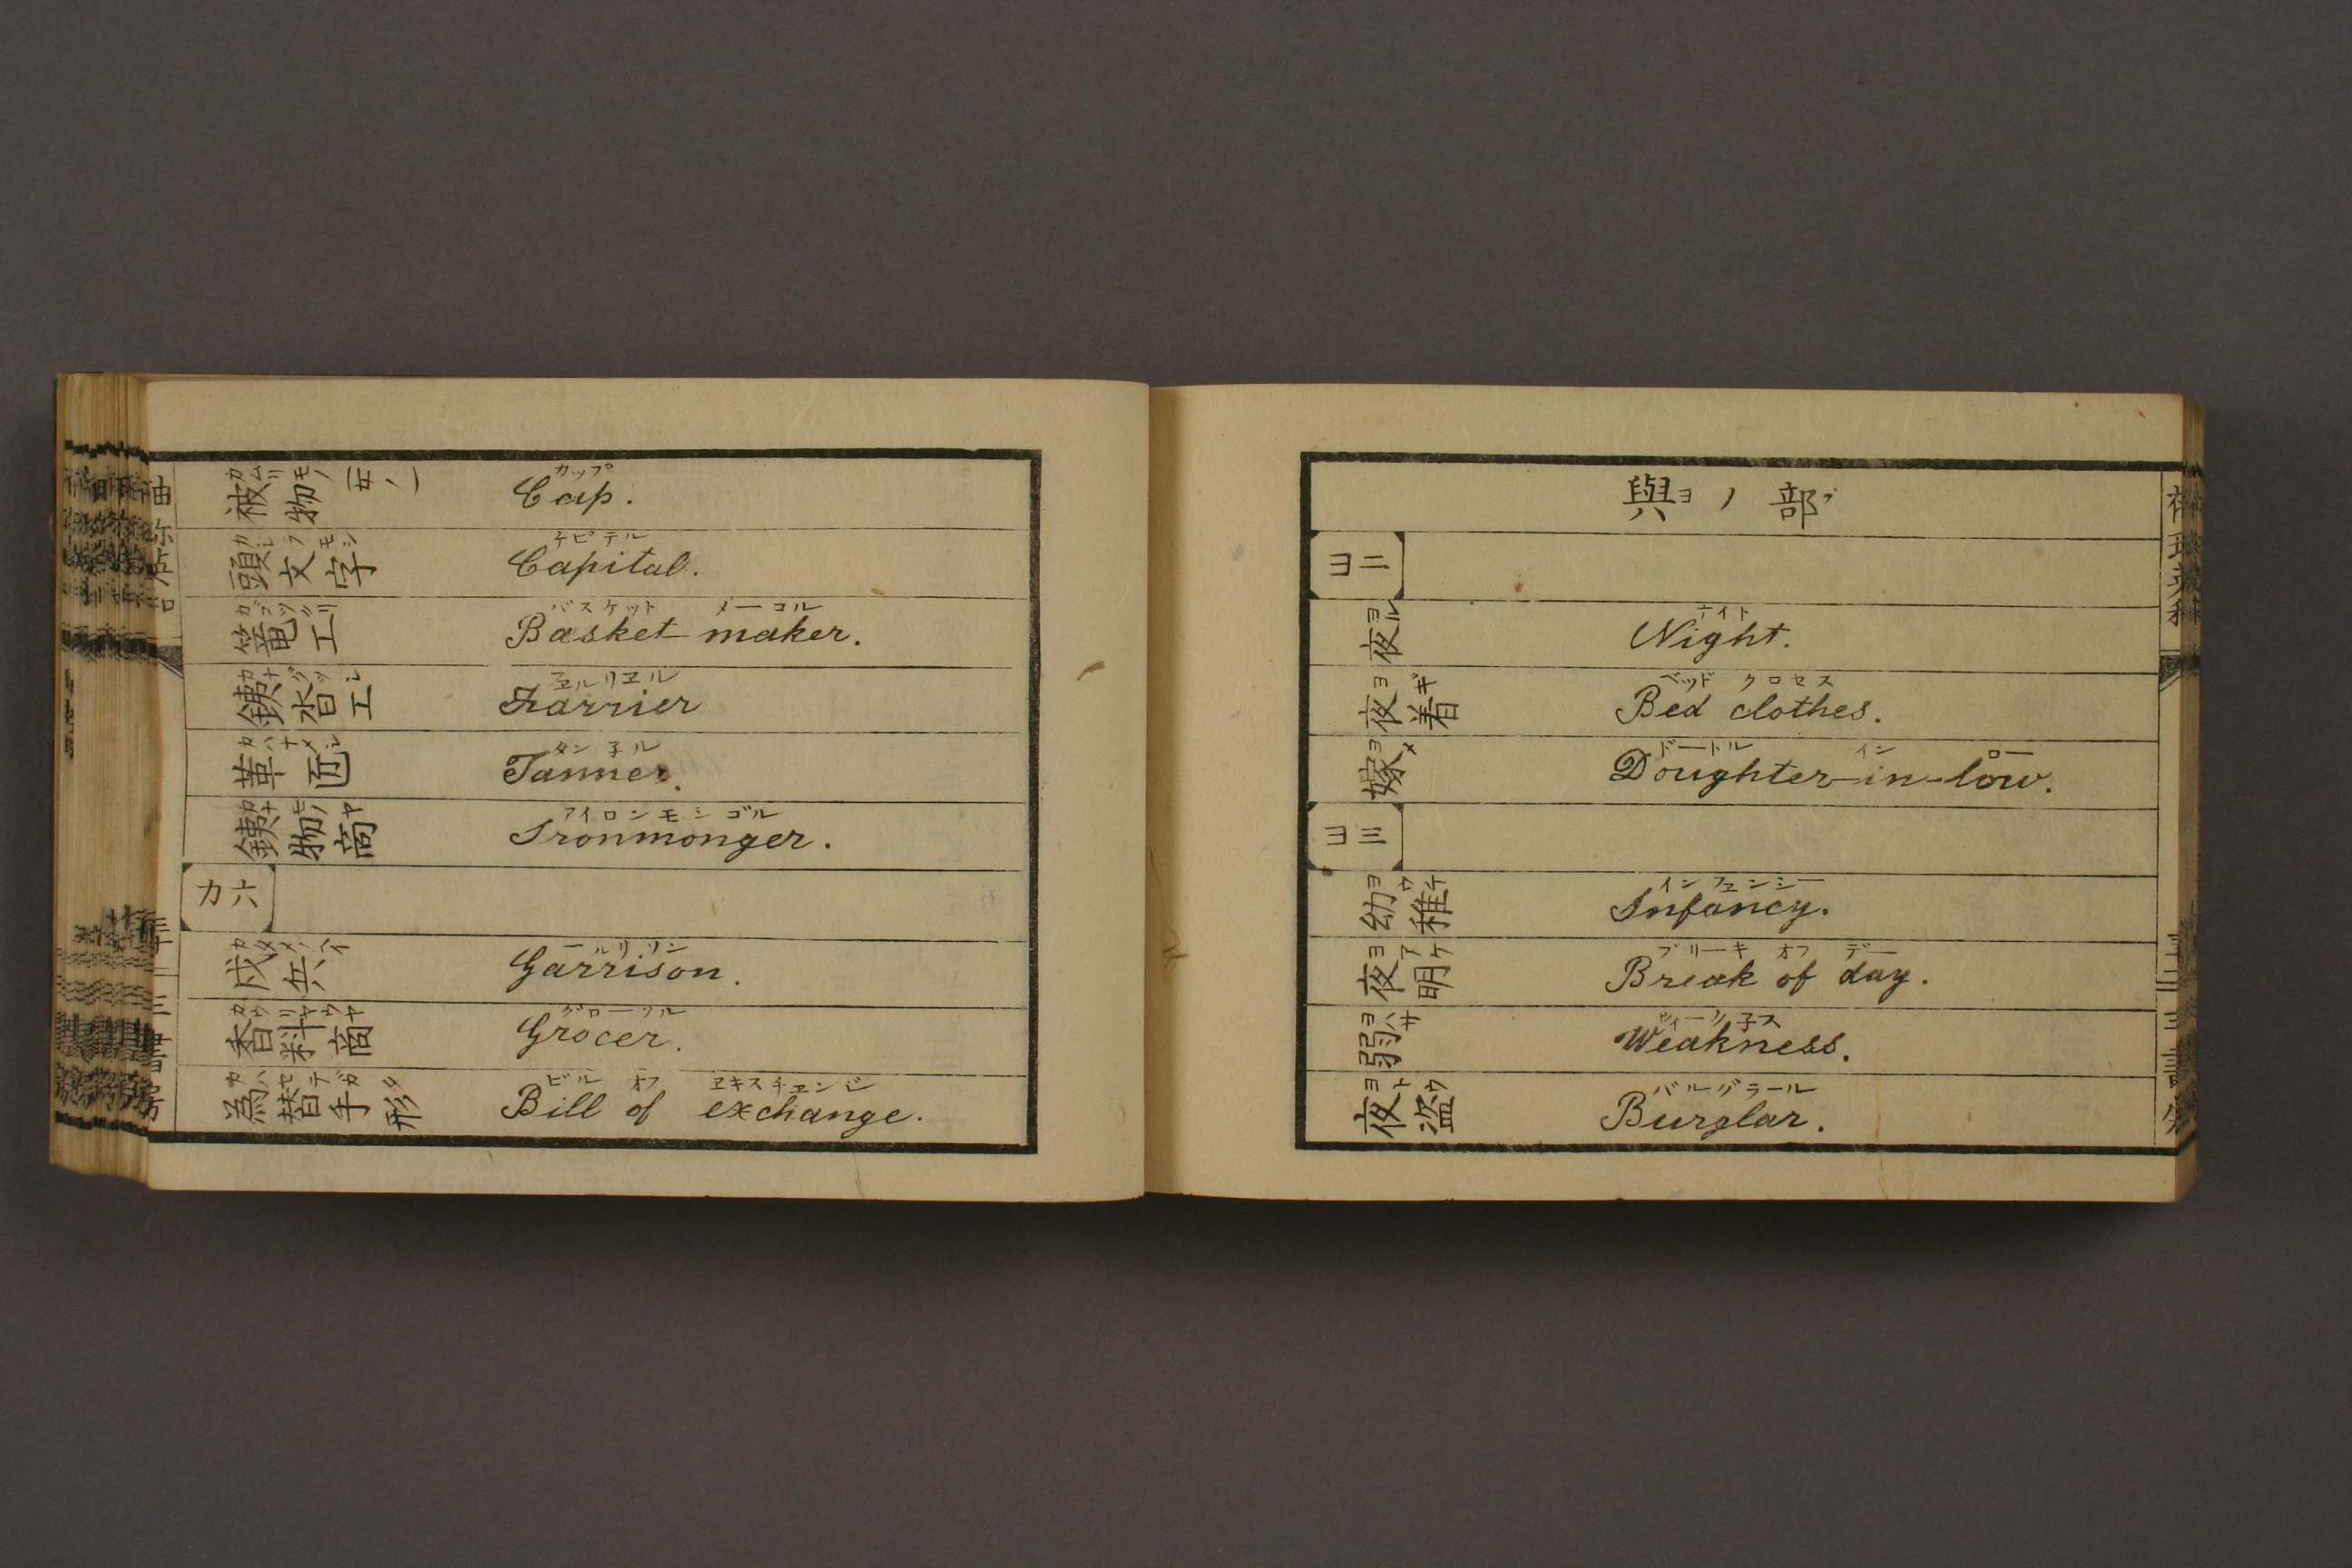 被物 カムリモノ カップ Cap.
頭文字 カシラモジ ケピテル Capital.
篭工 バスケット メーコル Basket maker.
銕沓工 カナグツシ Farrier
革匠 カハナメシ タン子ル Tanner.
銕物商 カナモノヤ アイロンモンゴル Ironmonger.
カ六
戍兵 カタメノヘイ Garrison.
香料商 カウリヤウヤ グローソル Grocer.
為替手形 カハセテガタ ビル オフ ヱキスチエンジ Bill of exchange.
與ヨノ部
ヨ二
夜 ヨル ナイト Night.
夜着 ヨギ ベッド クロセス Bed clothes.
嫁 ヨメ ドートル イン ロー Doughter-in-low.
ヨ三
幼稚 ヨウチ インフェンシー Infancy.
夜明 ヨアケ ブリーキ オフ デー Break of day.
弱 ヨハサ Weakness.
夜盗 ヨトウ バルグラール Burglar.